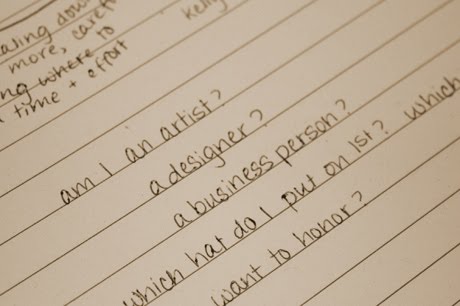 more, care
Kelly
ng where to
time + effort
am I an artist?
a designer?
a business person?
which hat do I put on 1st? which
want to honor?